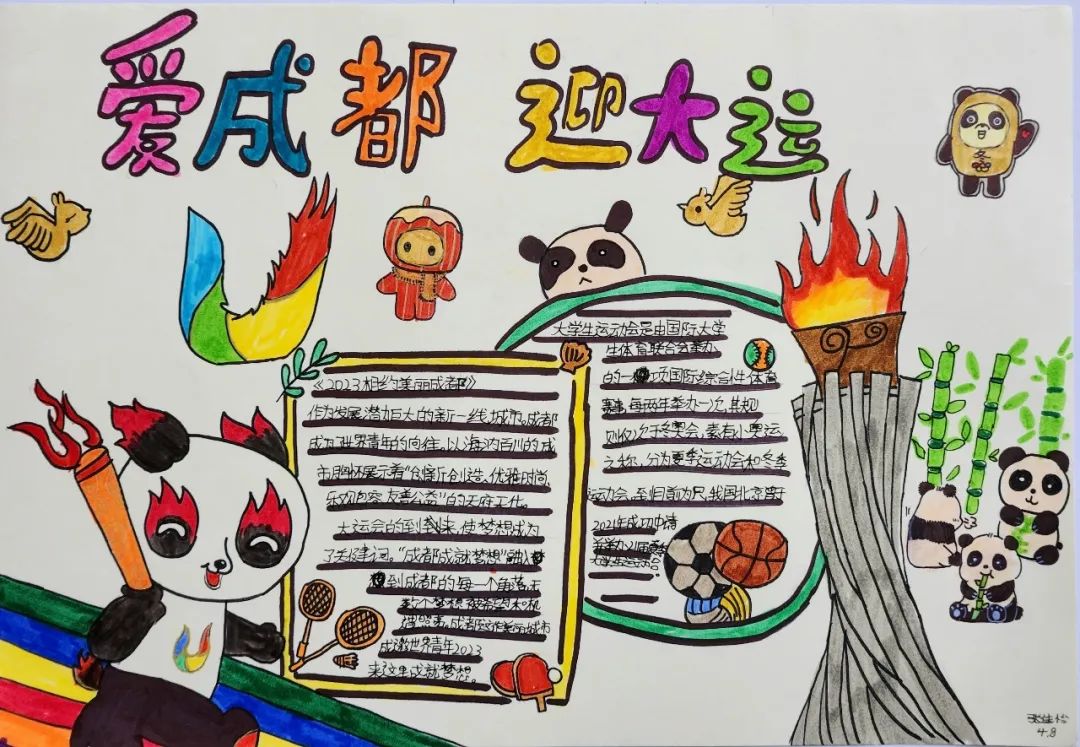 爱成都 迎大运
《2023相约美丽成都》
作为发展潜力巨大的新一线城市,成都
成为世界青年的向往。以海纳百川的成
市胸怀展示着"创新创造、优雅时尚、
乐观包容、友善公益"的天府文化。
大运会的到来,使梦想成为
了关键词。"成都成就梦想"融入
到成都的每一个角落,
成都
城市
成邀世界青年2023
来这里成就梦想。
大学生运动会是由国际大学
生体育联合会举办
的一项国际综合性体育
赛事,每两年举办一次,其规
则仅次于冬奥会,素有小奥运
之称,分为夏季运动会和冬季
运动会。至目前为止,我国北京于
2021年成功申请
冬
4.8